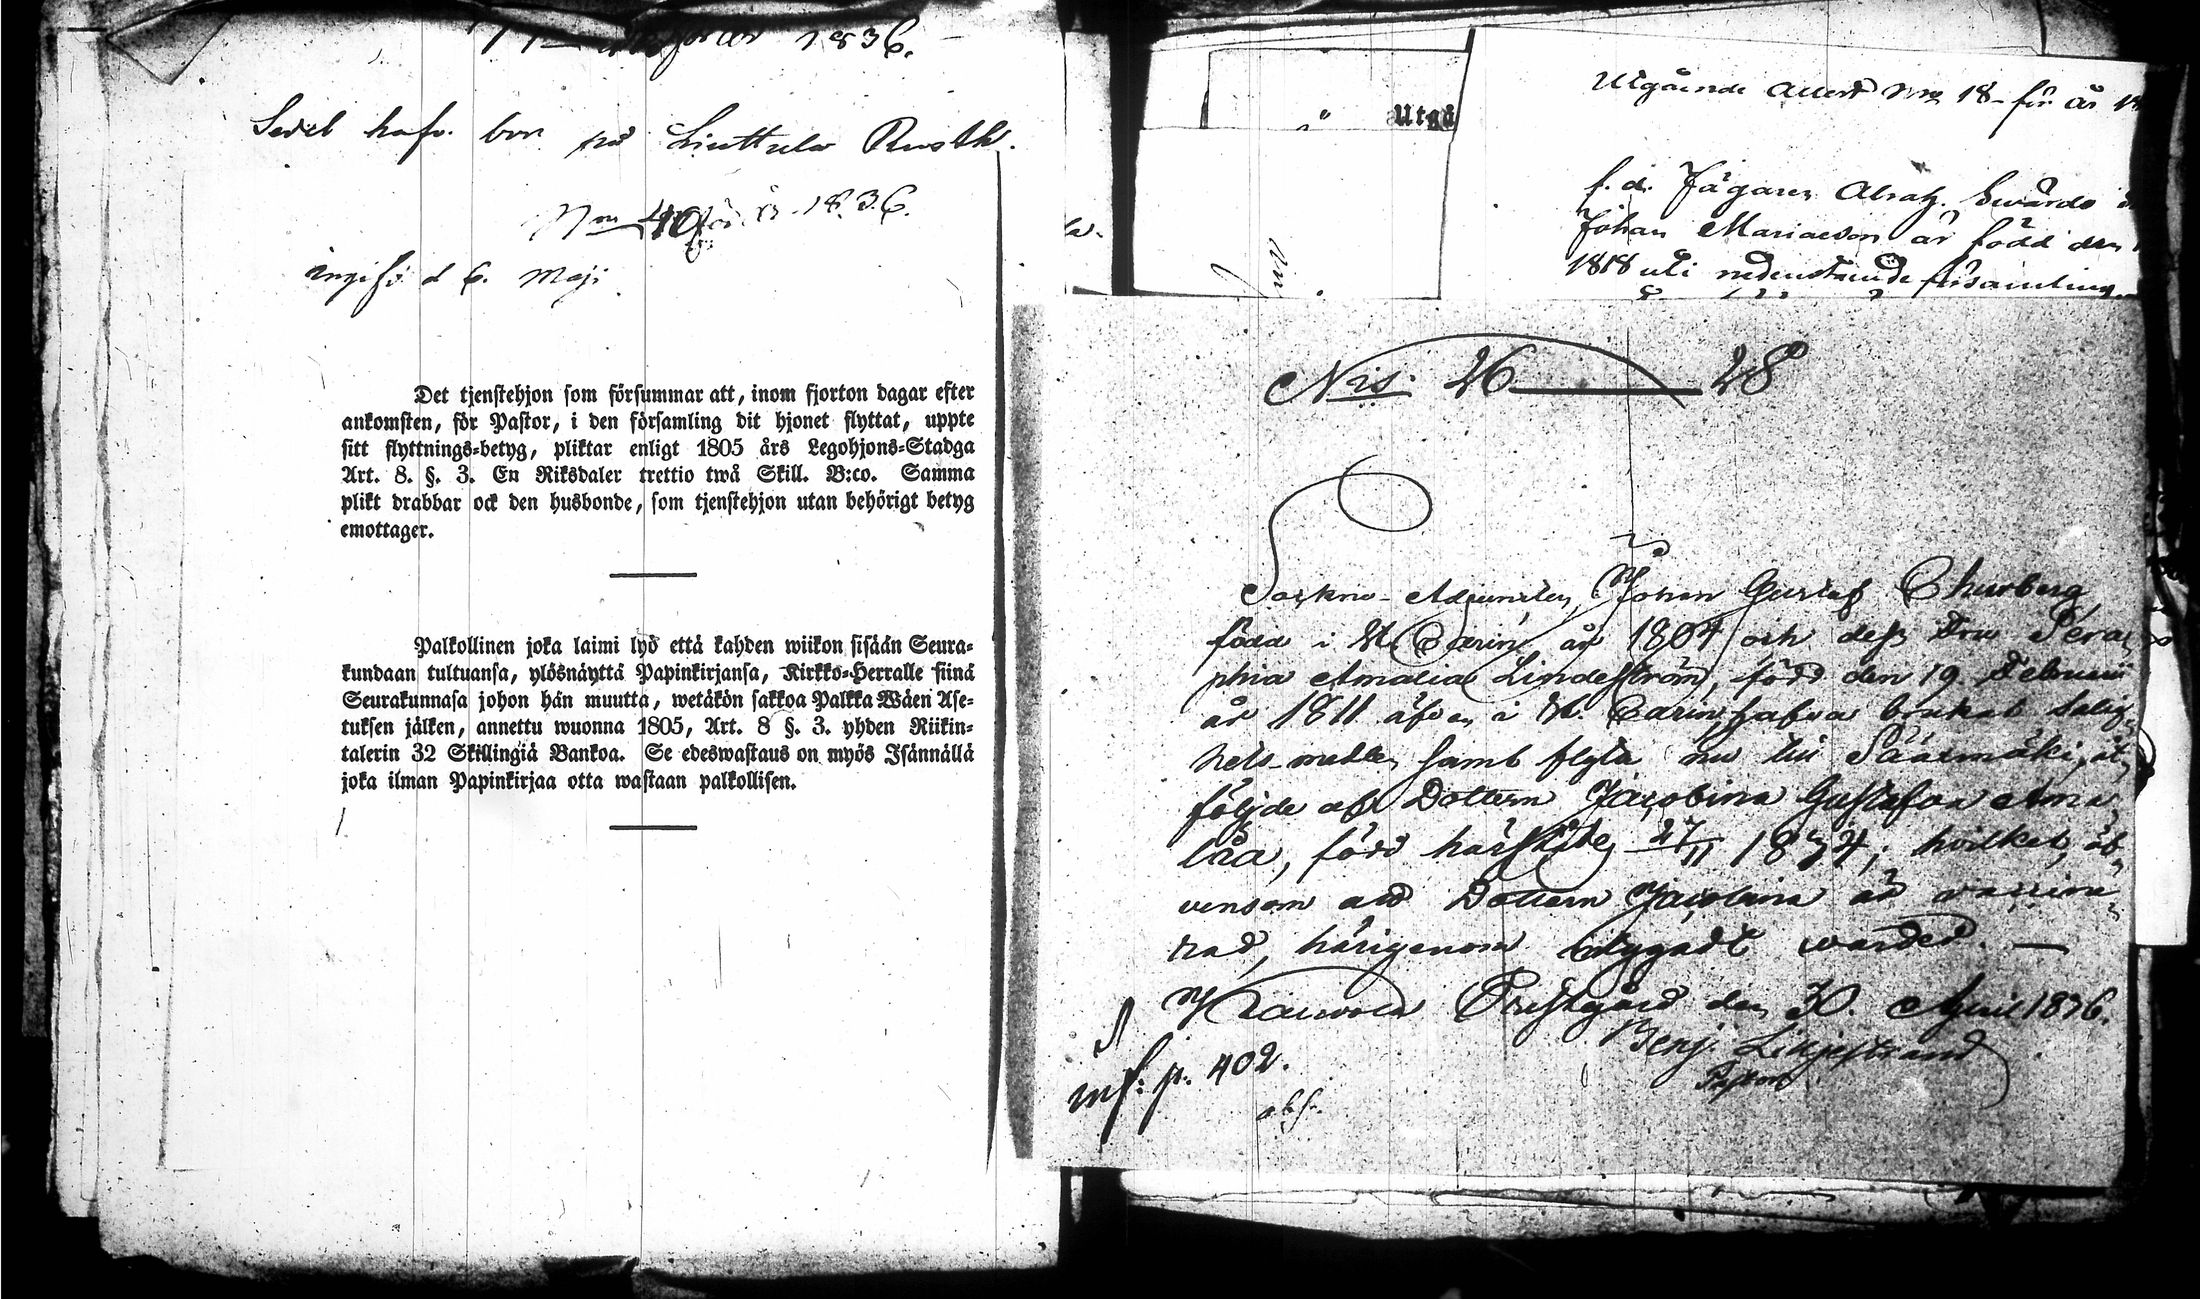 1836.
Sedel hafv. bor på Liuttula Rusth.
N:ro 40 för år 1836.
ingifv. d 6. Maji
Det tjenstehjon som försummar att, inom fjorton dagar efter
ankomsten, för Pastor, i den församling dit hjonet flyttat, uppte
sitt flyttnings-betyg, pliktar enligt 1805 års Legohjons-Stadga
Art. 8. §. 3. En Riksdaler trettio twå Skill. B:co. Samma
plikt drabbar ock den husbonde, som tjenstehjon utan behörigt betyg
emottager.
Palkollinen joka laimi lyö että kahden wiikon sisään Seura-
kundaan tultuansa, ylösnäyttä Papinkirjansa, Kirkko-Herralle siinä
Seurakunnasa johon hän muutta, wetäkön sakkoa Palkka Wäen Ase-
tuksen jälken, annettu wuonna 1805, Art. 8 §. 3. yhden Riikin-
talerin 32 Skillingiä Bankoa. Se edeswastaus on myös Isännällä
joka ilman Papinkirjaa otta wastaan palkollisen.
Utgå
Utgående attest N:ro 18 för år
f. d. Jägaren Abrah. Swärds
Johan Mariaeson är född den
1818 uti nedenstående församling
N:is. 26 — 28
Sockne-Adjuncten Johan Gustaf Churberg,
född i St. Carins år 1804 och dess Fru Sera-
phia Amalia Lindeström, född den 19. Februarii
år 1811 äfven i St. Carins, hafva brukat Salig-
hets-medlen samt flyta nu till Sääxmäki, åt-
följde af Dottern Jacobina Gustafva Ama-
lia, född härstädes 27/11 1834; hvilket, äf-
vensom att Dottern Jacobina är vaccine-
rad, härigenom intygadt warder. —
Prestgård den 30. April 1836.
Benj. Liljestrand
Pastor
inf: p. 402.
abs.